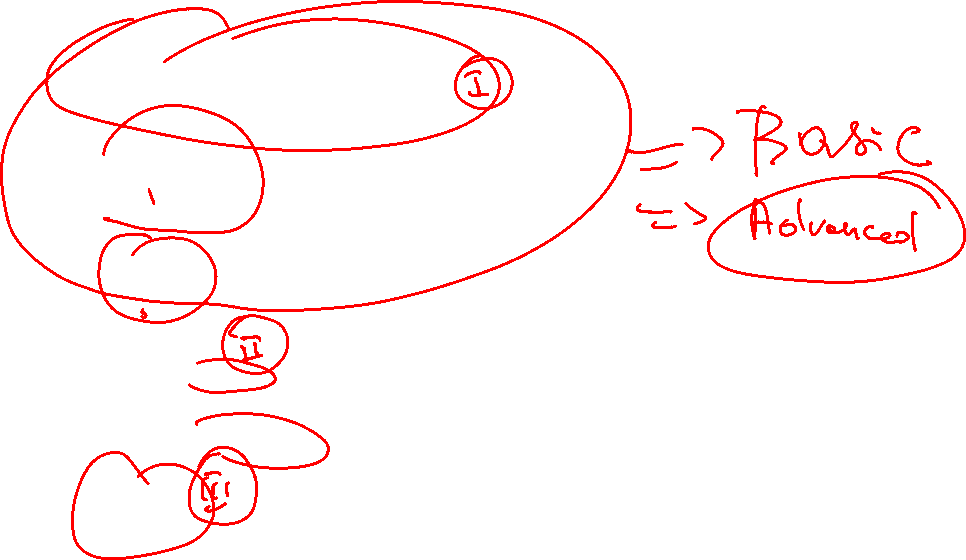 I
=> Basic
=> Advanced
II
III